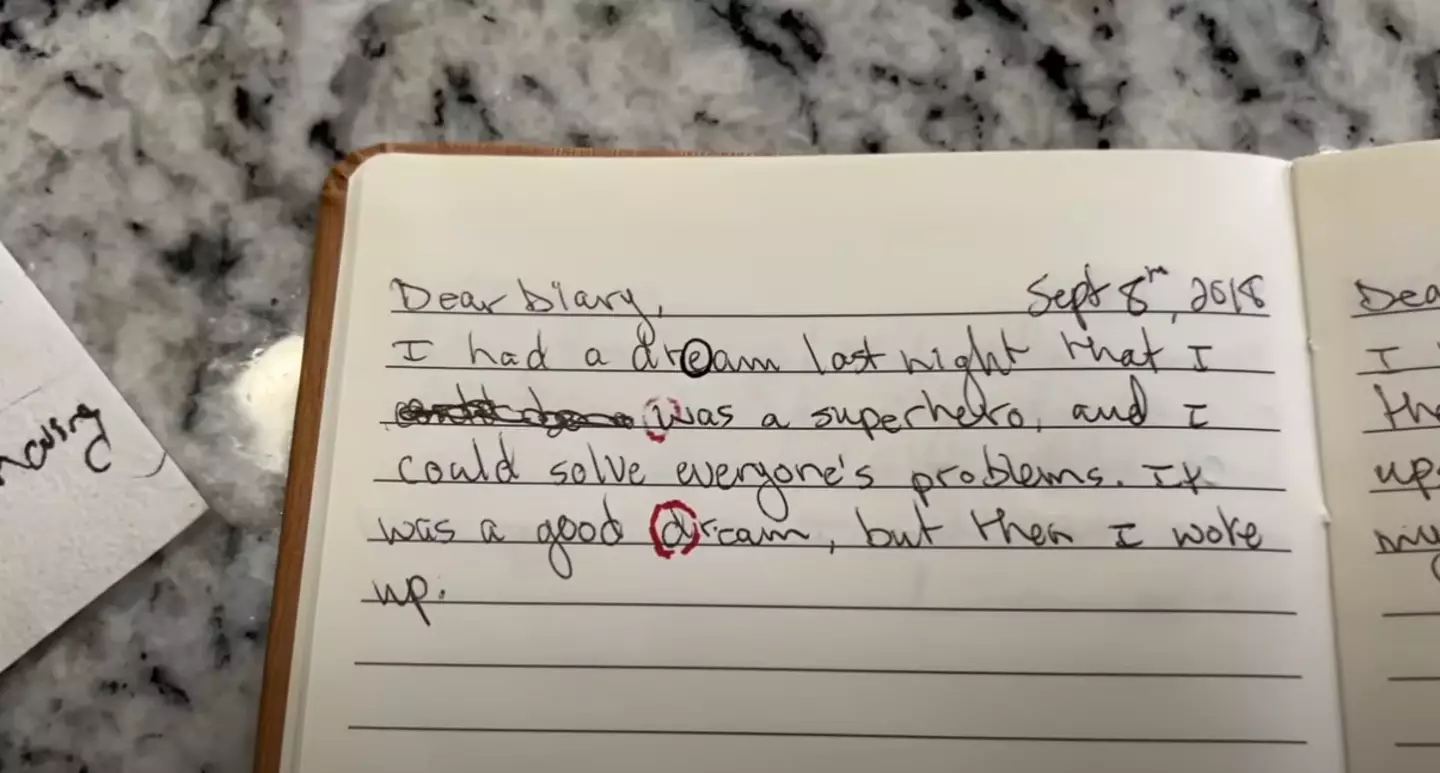 Dear Diary,
Sept 8th, 2018
I had a dream last night that I
was a superhero, and I
could solve everyone's problems. It
was a good dream, but then I woke
up.
Dea
I
the
up
my